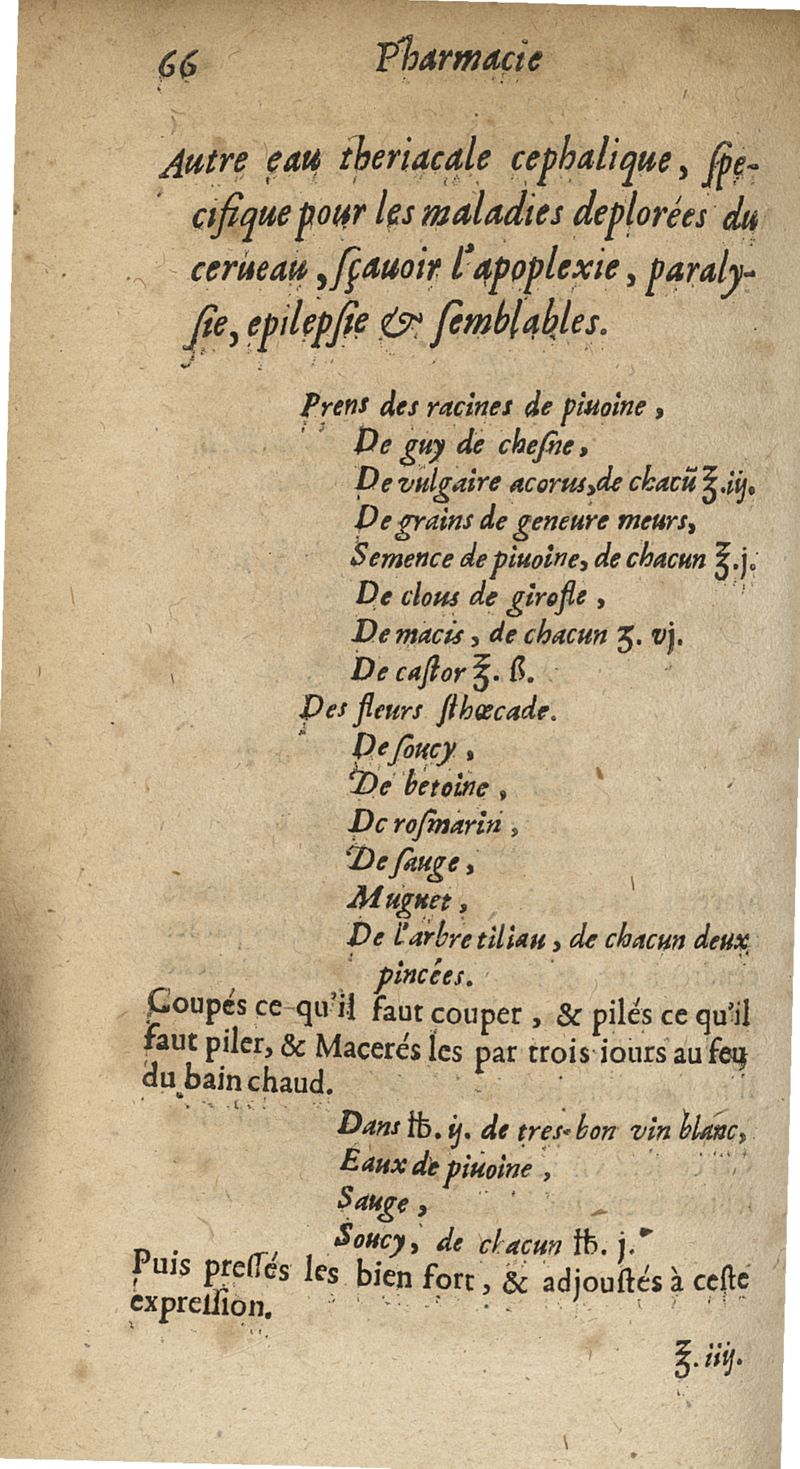 66 Pharmacie
Autre eau theriacale cephalique, ſpe-
cifique pour les maladies deplorées du
cerueau, ſçauoir l'apoplexie, paraly-
ſie, epilepſie & ſemblables.
Prens des racines de piuoine,
De guy de cheſne,
De vulgaire acorus, de chacū ℥.iij.
De grains de geneure meurs,
Semence de piuoine, de chacun ℥.j.
De clous de girofle,
De macis, de chacun ʒ. vj.
De caſtor ℥. ß.
Des fleurs ſthœcade.
De ſoucy,
De betoine,
De roſmarin,
De ſauge,
Muguet,
De l'arbre tiliau, de chacun deux
pincées.
Coupés ce qu'il faut couper, & pilés ce qu'il
faut piler, & Macerés les par trois iours au feu
du bain chaud.
Dans ℔. ij. de tres-bon vin blanc,
Eaux de piuoine,
Sauge,
Soucy, de chacun ℔. j.
Puis preſſés les bien fort, & adjouſtés à ceſte
expreſſion.
℥. iiij.